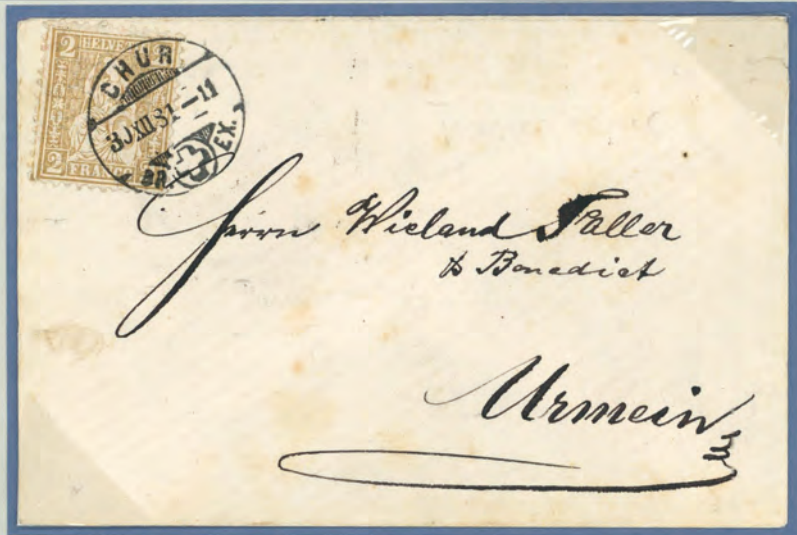 2 HELVE
2 FRANC 2
CHUR
30 XII 81 – 11
BR. EX.
Herrn Wieland Faller
b Benedict
Urmein